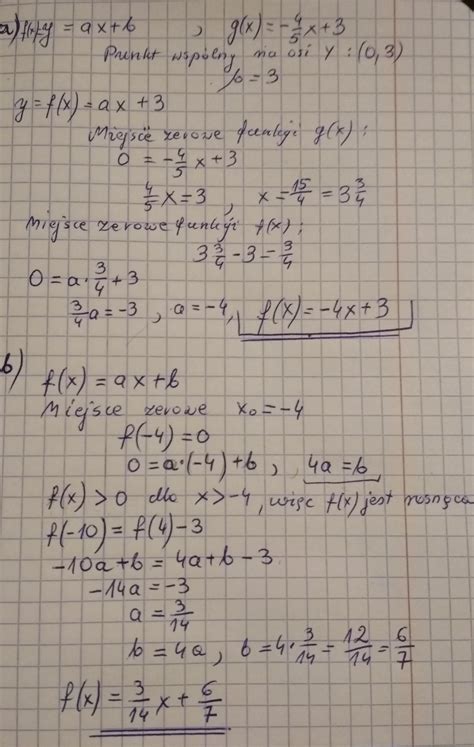 a) f(x)=y = ax+b , g(x)=-4/5x+3
Punkt wspólny na osi Y : (0,3)
b=3
y=f(x)=ax+3
Miejsce zerowe funkcji g(x):
0 = -4/5x+3
4/5x=3 , x=15/4 = 3 3/4
Miejsce zerowe funkcji f(x):
3 3/4 -3 = 3/4
0=a·3/4+3
3/4a=-3 , a=-4, f(x)=-4x+3
b)
f(x)=ax+b
Miejsce zerowe x₀=-4
f(-4)=0
0=a·(-4)+b , 4a=b
f(x)>0 dla x>-4, więc f(x) jest rosnąca
f(-10)=f(4)-3
-10a+b=4a+b-3
-14a=-3
a=3/14
b=4a, b=4·3/14=12/14=6/7
f(x)=3/14x+6/7